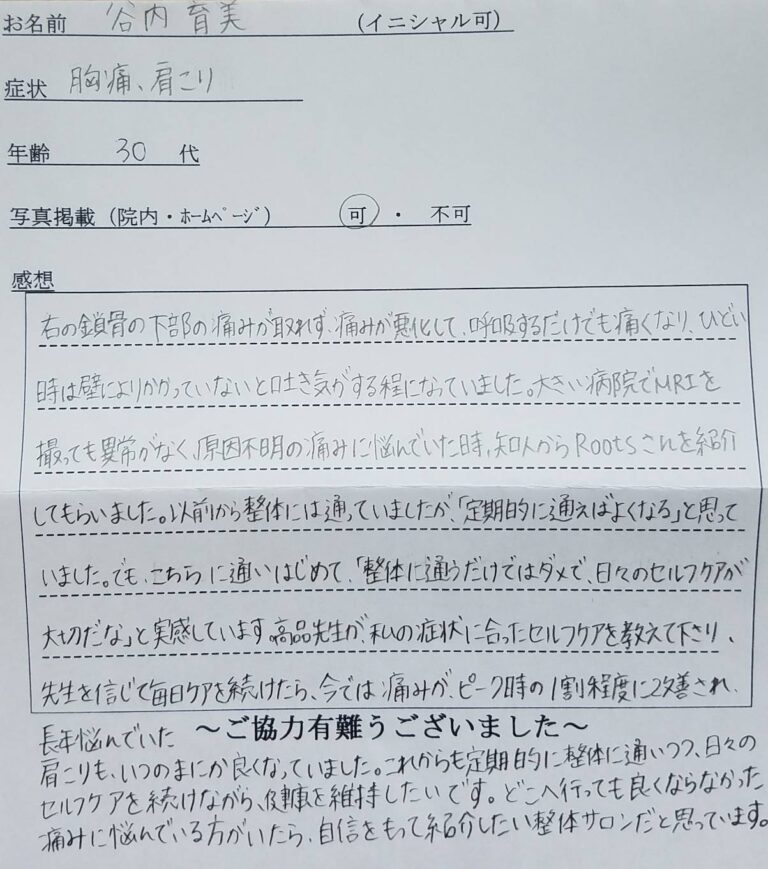 お名前 谷内 育美 (イニシャル可)
症状 胸痛、肩こり
年齢 30 代
写真掲載 (院内・ホームページ) 可 ・ 不可
感想
右の鎖骨の下部の痛みが取れず、痛みが悪化して、呼吸するだけでも痛くなり、ひどい
時は壁によりかかっていないと吐き気がする程になっていました。大きい病院でMRIを
撮っても異常がなく、原因不明の痛みに悩んでいた時、知人からRootsさんを紹介
してもらいました。以前から整体には通っていましたが、「定期的に通えばよくなる」と思って
いました。でも、こちらに通いはじめて、「整体に通うだけではダメで、日々のセルフケアが
大切だな」と実感しています。高品先生が、私の症状に合ったセルフケアを教えて下さり、
先生を信じて毎日ケアを続けたら、今では痛みが、ピーク時の1割程度に改善され、
～ご協力有難うございました～
長年悩んでいた
肩こりも、いつのまにか良くなっていました。これからも定期的に整体に通いつつ、日々の
セルフケアを続けながら、健康を維持したいです。どこへ行っても良くならなかった
痛みに悩んでいる方がいたら、自信をもって紹介したい整体サロンだと思っています。